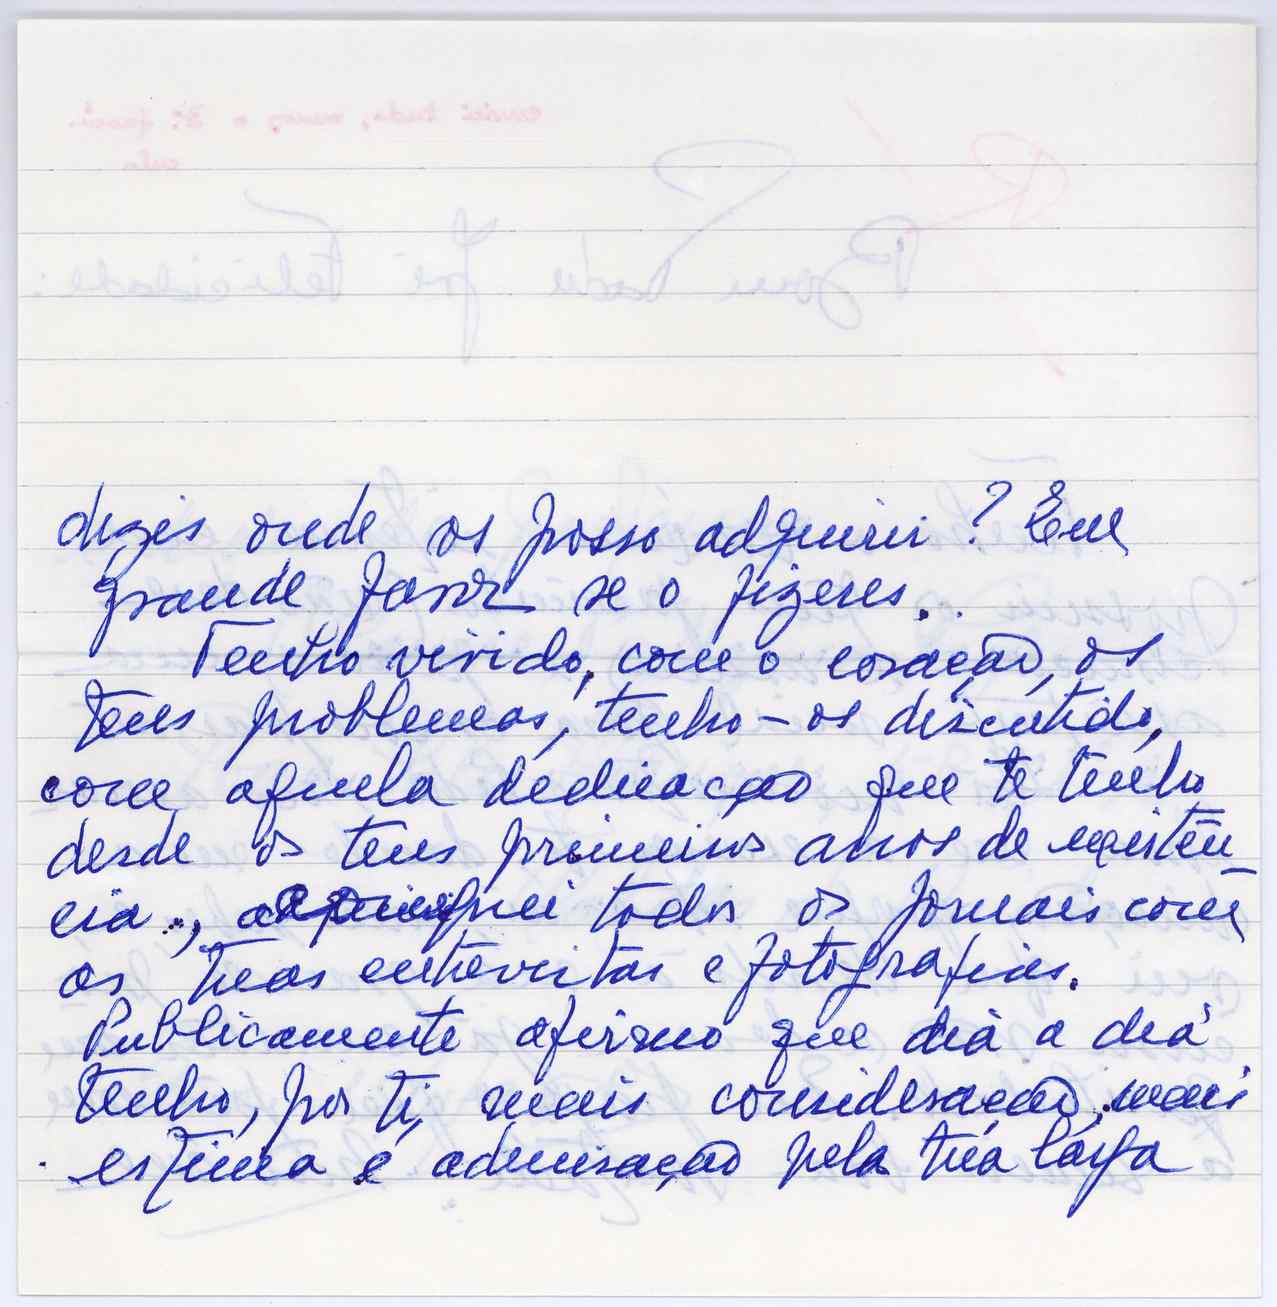 dizeis onde os posso adquirir? Em
grande favor se o fizeres.
Tenho vivido, com o coração, os
teus problemas, tenho-os discutido,
com aquela dedicação que te tenho
desde os teus primeiros anos de existên-
cia, adquiri todos os jornais com
as tuas entrevistas e fotografias.
Publicamente afirmo que dia a dia
tenho, por ti, mais consideração, mais
estima e admiração pela tua larga